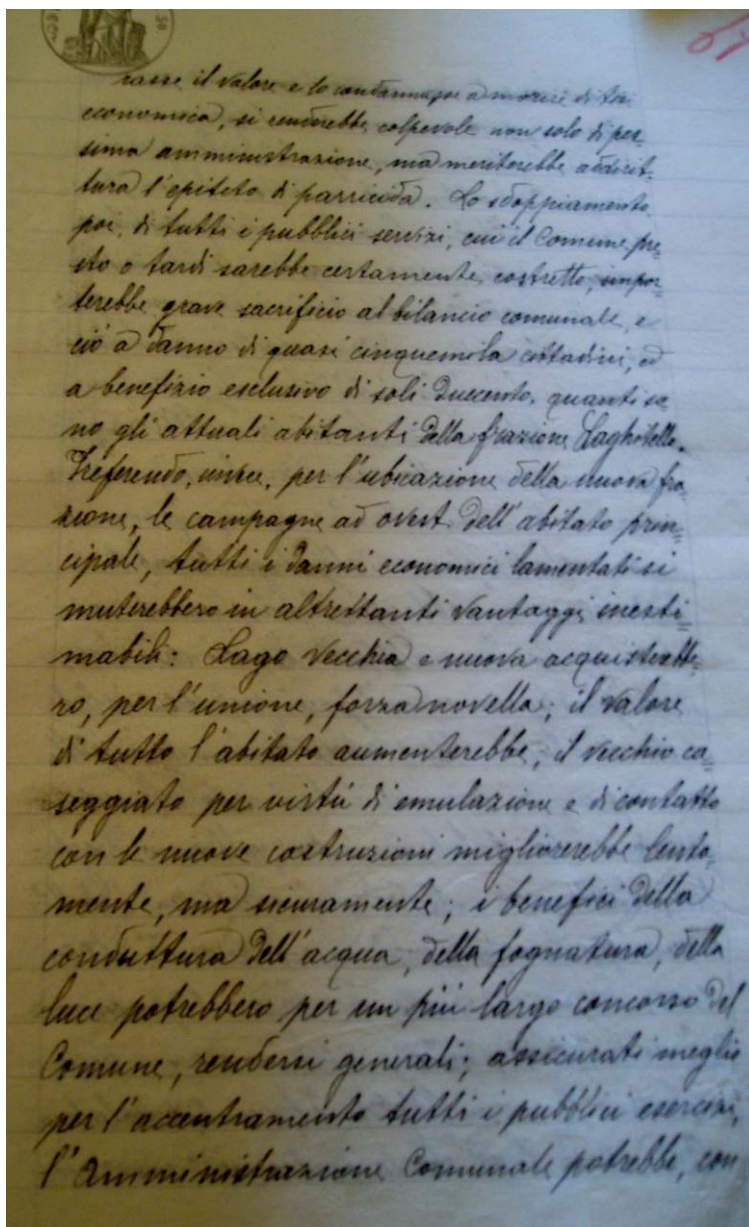 rasse il valore e lo condannasse a morire di tisi
economica, si renderebbe colpevole non solo di pes=
sima amministrazione, ma meriterebbe addirit=
tura l'epiteto di parricida. Lo sdoppiamento
poi, di tutti i pubblici servizi, cui il Comune pre=
sto o tardi sarebbe certamente costretto, impor=
terebbe grave sacrificio al bilancio comunale, e
ciò a danno di quasi cinquemila cittadini, ed
a benefizio esclusivo di soli duecento, quanti so=
no gli attuali abitanti della frazione Laghitello.
Preferendo, invece, per l'ubicazione della nuova fra=
zione, le campagne ad ovest dell'abitato prin=
cipale, tutti i danni economici lamentati si
muterebbero in altrettanti vantaggi inesti=
mabili: Lago vecchia e nuova acquistereb=
ro, per l'unione, forza novella; il valore
di tutto l'abitato aumenterebbe; il vecchio ca=
seggiato per virtù di emulazione e di contatto
con le nuove costruzioni migliorerebbe lenta=
mente, ma sicuramente; i benefici della
conduttura dell'acqua, della fognatura, della
luce potrebbero per un più largo concorso del
Comune, rendersi generali; assicurati meglio
per l'accentramento tutti i pubblici esercizi,
l'Amministrazione Comunale potrebbe, con